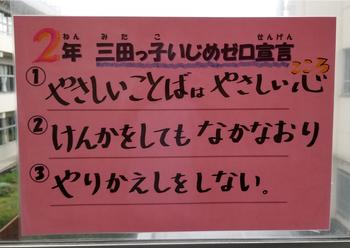 2年 三田っ子いじめゼロ宣言
ねん みたこ せんげん
① やさしいことばは やさしい心
こころ
② けんかをしても なかなおり
③ やりかえしをしない。